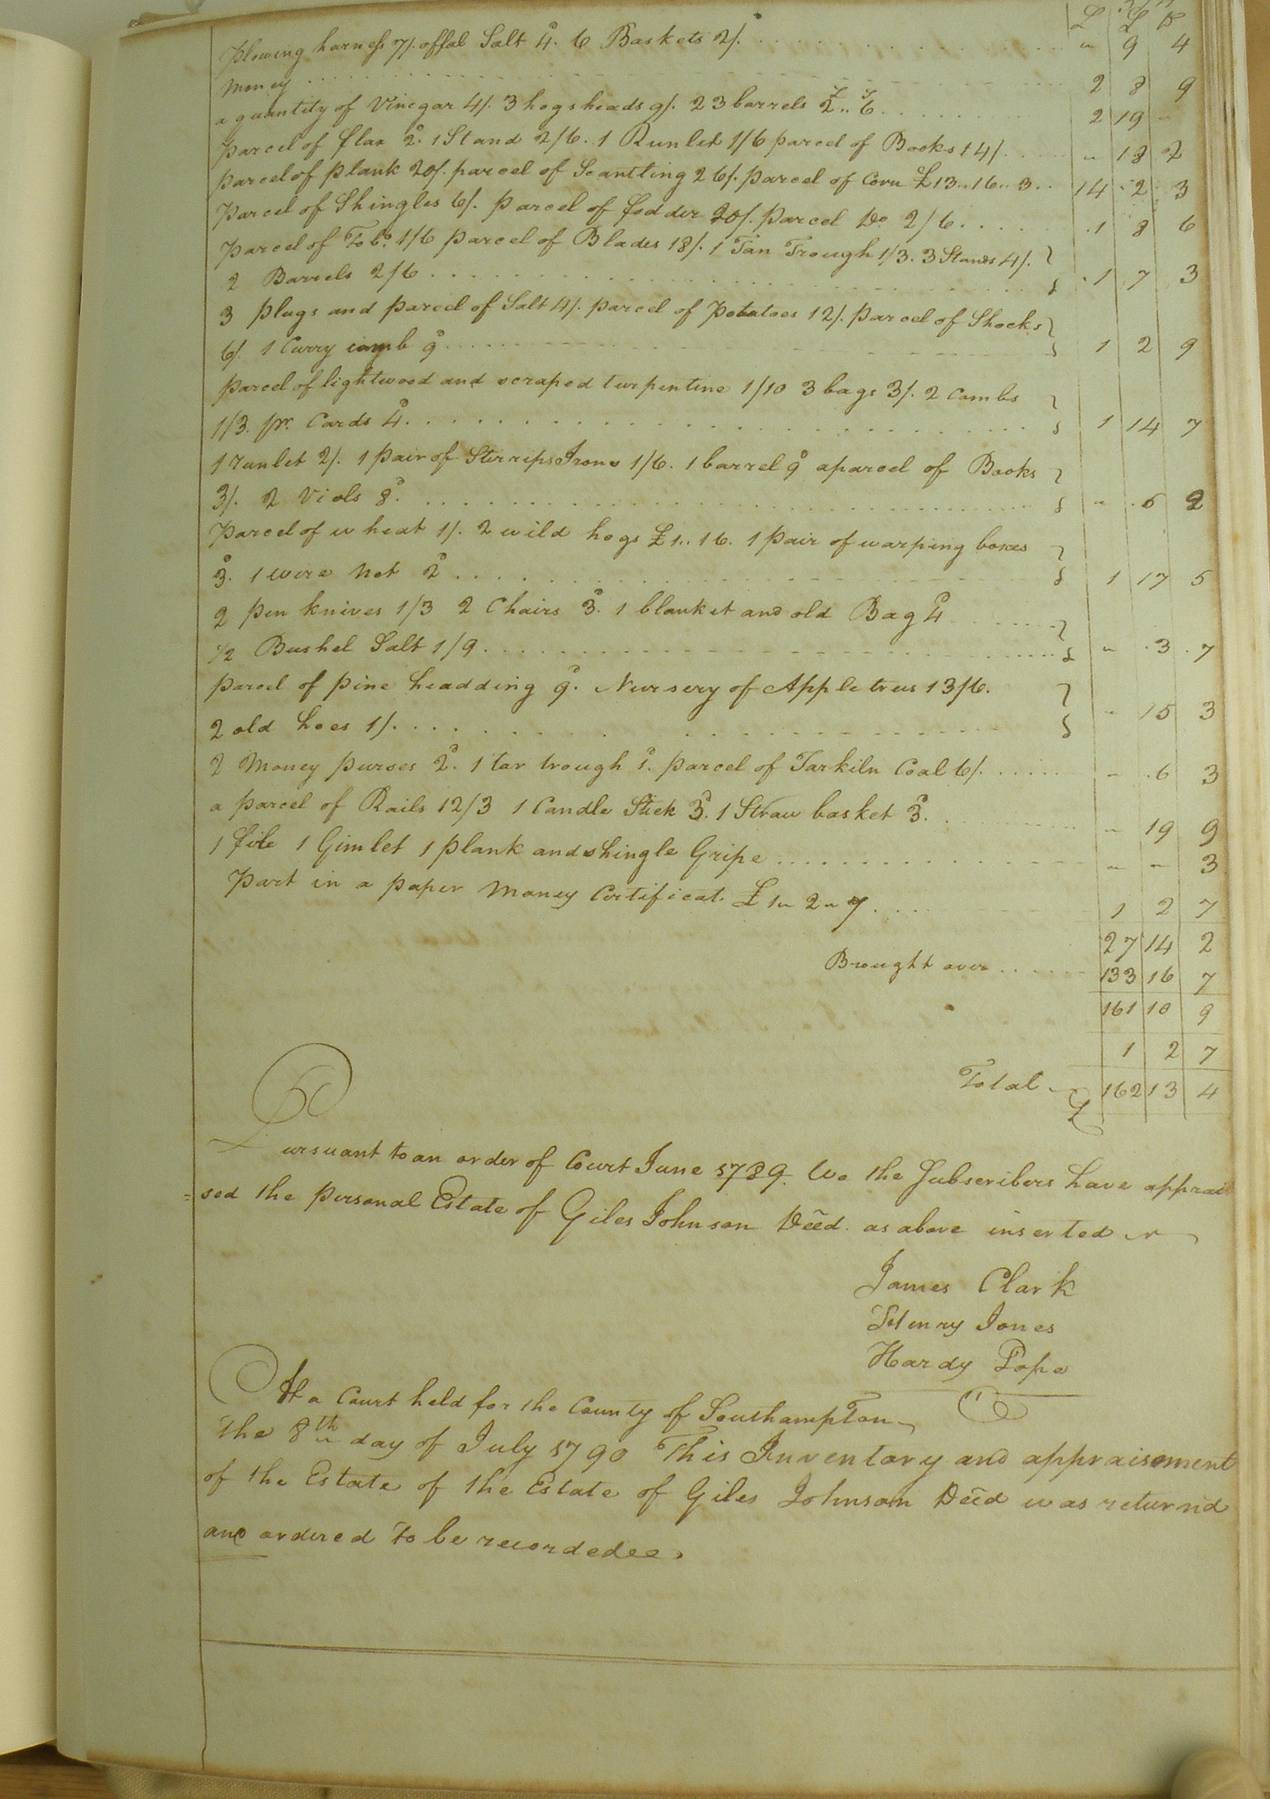 £ S D
Plowing harness 7/. offal Salt 4d. 6 Baskets 2/. " 9 4
Money 2 8 9
a quantity of Vinegar 4/. 3 hogsheads 9/. 23 barrels £2.. 6 2 19 -
Parcel of flax 2d. 1 Stand 2/6. 1 Runlet 1/6 parcel of Books 14/. " 18 2
Parcel of Plank 20/. parcel of Scantling 26/. Parcel of Corn £13..16..3.. 14 2 3
Parcel of Shingles 6/. Parcel of fodder 20/. Parcel Do 2/6 1 8 6
Parcel of Tobo. 1/6 Parcel of Blades 18/. 1 Tan Trough 1/3. 3 Stands 4/.
2 Barrels 2/6 1 7 3
3 Plugs and Parcel of Salt 4/. parcel of Potatoes 12/. Parcel of Shocks
6/. 1 Curry comb 9d 1 2 9
Parcel of lightwood and scraped turpentine 1/10 3 bags 3/. 2 Combs
1/3. pr. Cards 4d. 1 14 7
1 runlet 2/. 1 Pair of Stirrips Irons 1/6. 1 barrel 9d a parcel of Books
3/. 2 Viols 8d. " 6 2
Parcel of wheat 1/. 2 wild hogs £1..16. 1 Pair of warping boxes
3d. 1 were Net 2d 1 17 5
2 Pen knives 1/3 2 Chairs 3d. 1 blanket and old Bag 4d
1/2 Bushel Salt 1/9 " 3 7
Parcel of Pine headding 9d. Nursery of Apple trees 13/6.
2 old hoes 1/. - 15 3
2 Money Purses 2d. 1 tar trough 1d. Parcel of Tarkiln Coal 6/. - 6 3
a Parcel of Rails 12/3 1 Candle Stick 3d. 1 Straw basket 3d. - 19 9
1 file 1 Gimlet 1 Plank and shingle Gripe - - 3
Part in a Paper Money Certificat. £1" 2" 7 1 2 7
27 14 2
Brought over 133 16 7
161 10 9
1 2 7
Total £ 162 13 4
Pursuant to an order of Court June 1789. We the Subscribers have apprai
=sed the Personal Estate of Giles Johnson Decd. as above inserted
James Clark
Henry Jones
Hardy Pope
At a Court held for the County of Southampton
the 8th day of July 1790 This Inventory and appraisement
of the Estate of the Estate of Giles Johnson Decd was returnd
and ordered to be recorded